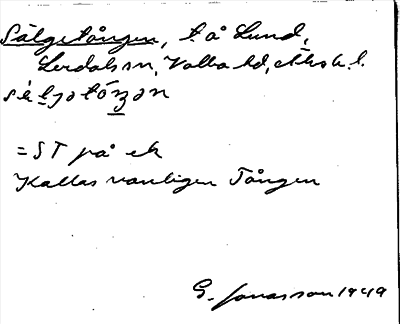 Sälgetången, t. å Lund,
Lerdals sn, Valbo hd, Älvsb. l.
= ST på ek
Kallas vanligen Tången
G. Jonasson 1949